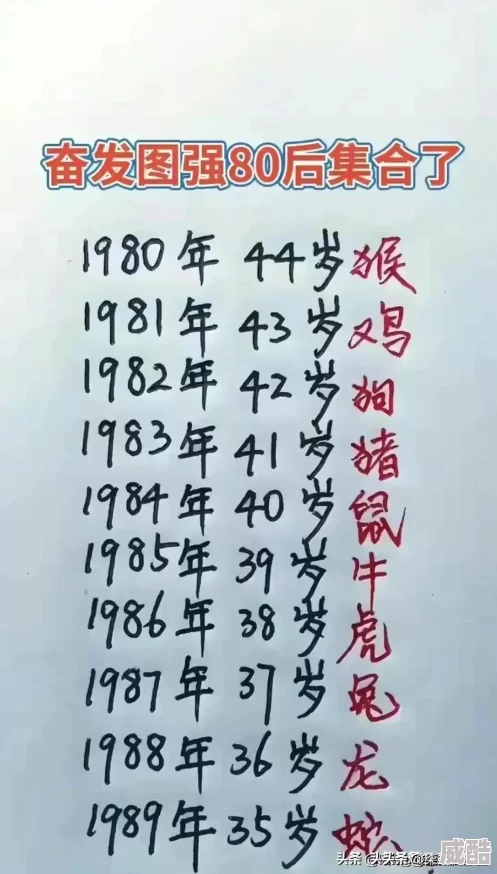 奋发图强80后集合了
1980年 44岁猴
1981年 43岁鸡
1982年 42岁狗
1983年 41岁猪
1984年 40岁鼠
1985年 39岁牛
1986年 38岁虎
1987年 37岁兔
1988年 36岁龙
1989年 35岁蛇
威酷
头条